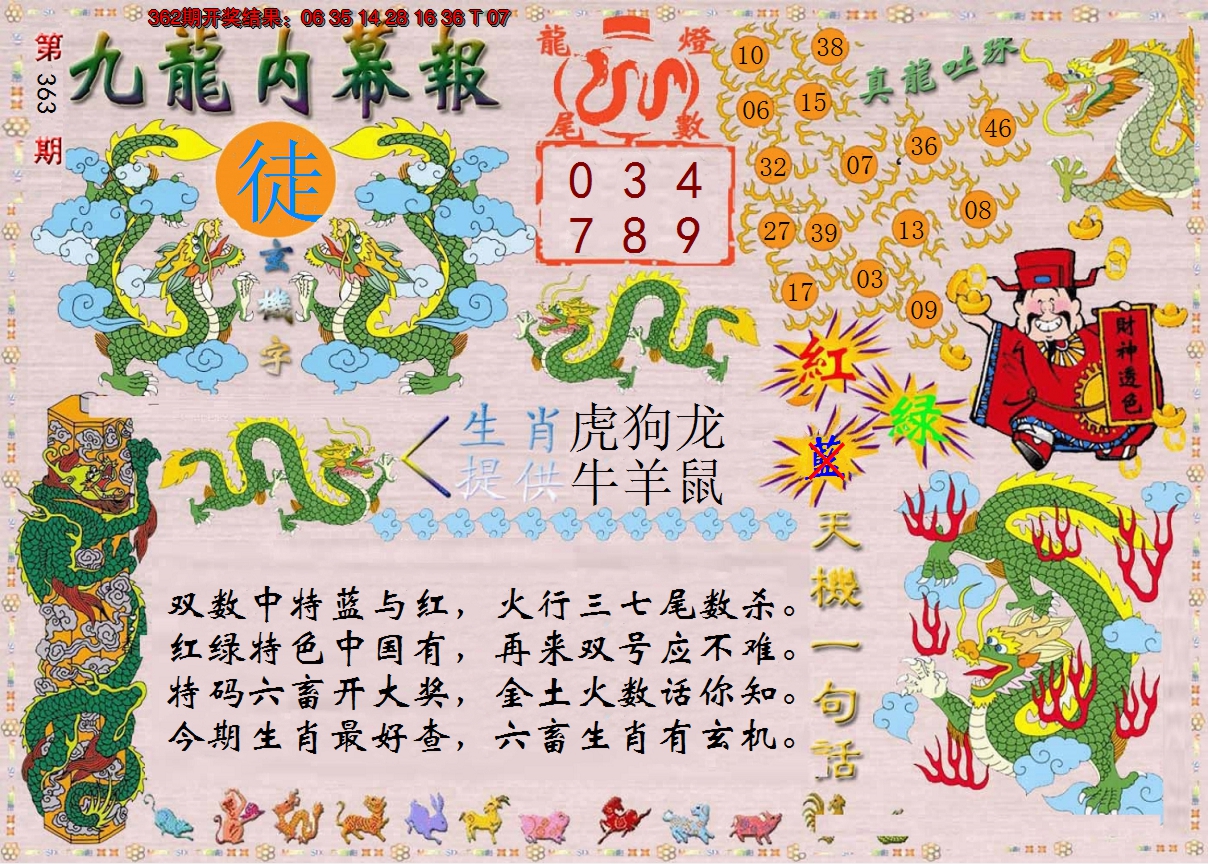 362期开奖结果：06 35 14 28 16 36 T 07
第363期
九龍内幕報
徒
玄機字
龍燈
尾數
0 3 4
7 8 9
真龍吐珠
10
38
06
15
36
46
32
07
08
27
39
13
17
03
09
財神透色
紅
綠
藍
生肖
提供
虎狗龙
牛羊鼠
天機一句話
双数中特蓝与红，火行三七尾数杀。
红绿特色中国有，再来双号应不难。
特码六畜开大奖，金土火数话你知。
今期生肖最好查，六畜生肖有玄机。